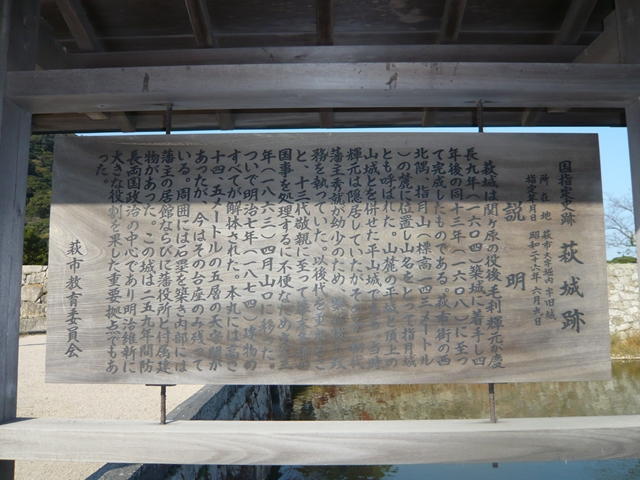 国指定史跡 萩城跡
所在地 萩市大字堀内字旧城
指定年月日 昭和二十六年六月九日
説明
萩城は関ヶ原の役後毛利輝元が慶
長九年(一六〇四)築城に着手し四
年後の同十三年(一六〇八)に至っ
て完成したものである。萩市街の西
北隅、指月山(標高一四三メートル
)の麓に位置し山名をとって指月城
とも呼ばれた。山麓の平城と頂上の
山城とを併せた平山城で
輝元は隠居していたが
藩主秀就が幼少のため
務を執っていた。以後代々
と、十三代敬親に至って
国事を処理するに不便なため文久三
年(一八六三)四月山口に移った。
ついで明治七年(一八七四)建物の
すべてが解体された。本丸には高さ
十四・五メートルの五層の天守閣が
あったが、今はその台座のみ残って
いる。周囲には石塁を築き内部には
藩主の居館ならびに藩役所と付属建
物があった。この城は二五九年間防
長両国政治の中心であり明治維新に
大きな役割を果した重要拠点でもあ
った。
萩市教育委員会